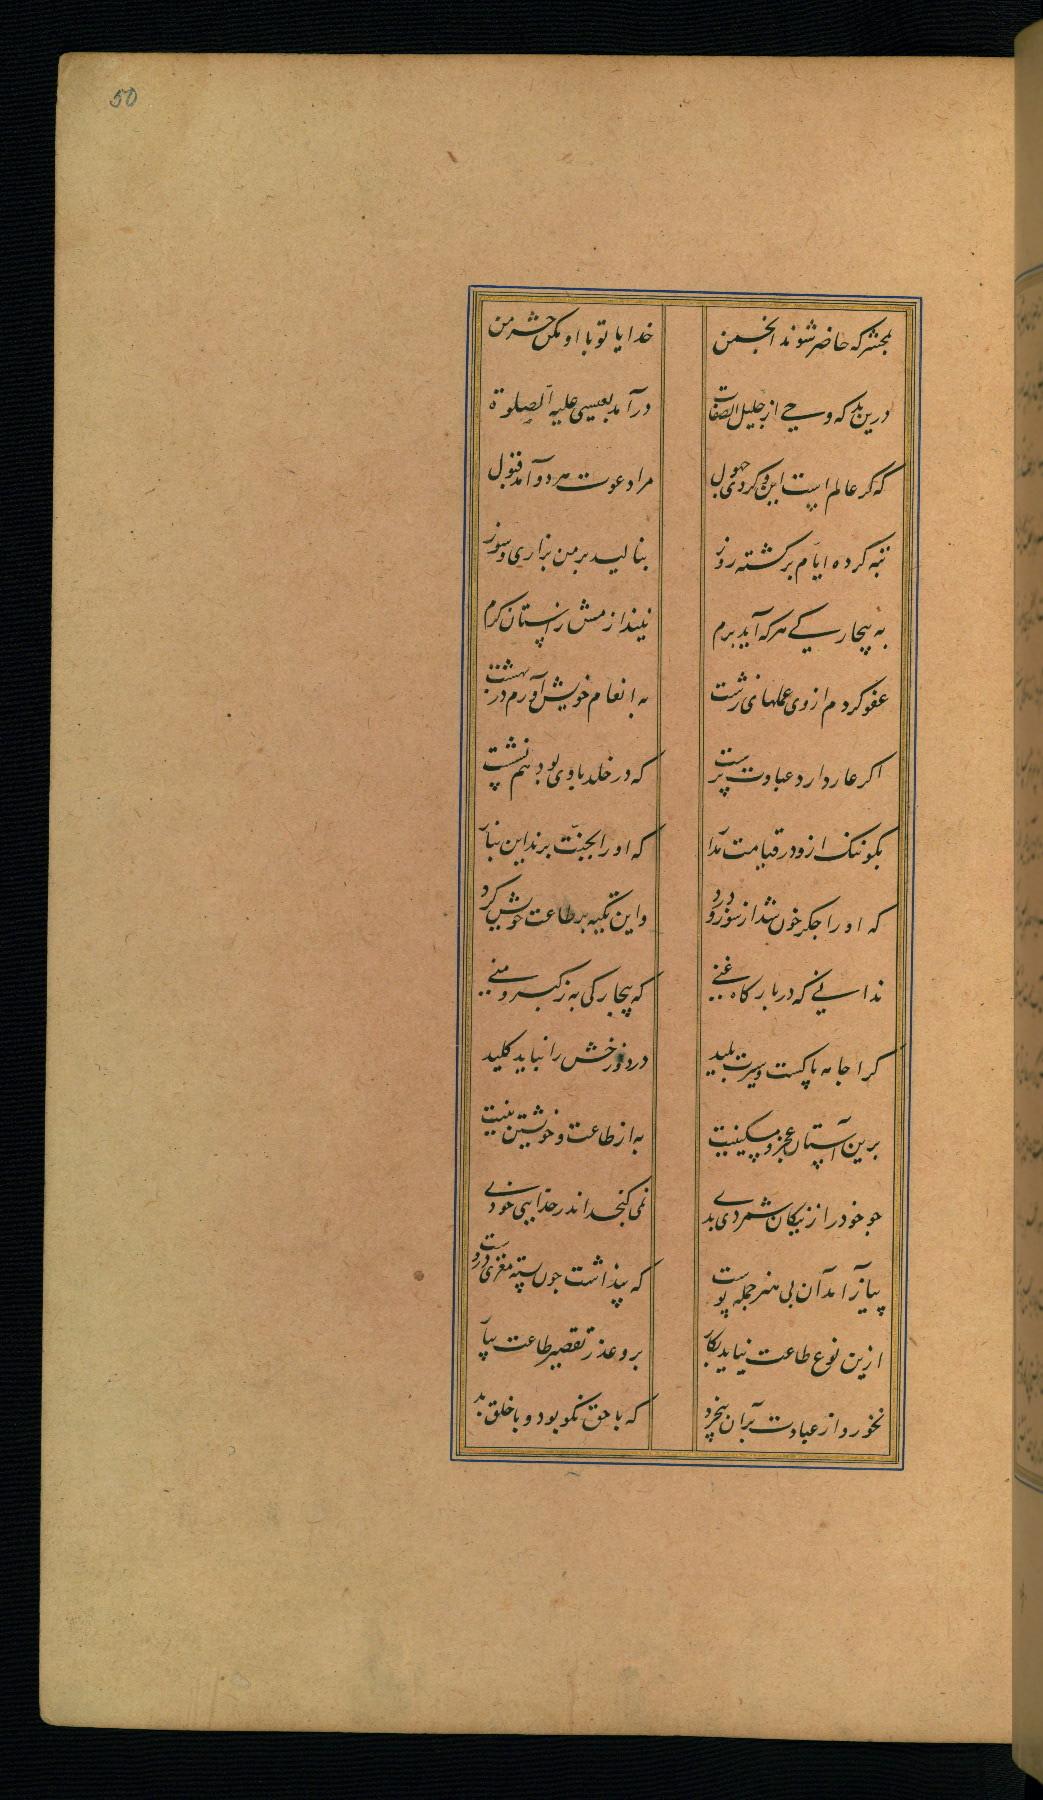 50
بمحشر که حاضر شوند انجمن خدایا تو با او مکن حشر من
درین بد که وحی از جلیل الصفات درآمد بعیسی علیه الصلوة
که گر عالم است این و گر وی جهول مرا دعوت هر دو آمد قبول
تبه کرده ایام برگشته روز بنالید بر من بزاری و سوز
به بیچارگی هر که آید برم نیندازمش ز آستان کرم
عفو کردم از وی عملهای زشت به انعام خویش آورم در بهشت
اگر عار دارد عبادت پرست که در خلد با وی بود هم نشست
بگو ننگ ازو در قیامت مدار که او را بجنت برند این بنار
که او را جگر خون شد از سوز و درد و این تکیه بر طاعت خویش کرد
ندانی که در بارگاه غنی که بیچارگی به ز کبر و منی
کرا جامه پاکست و سیرت پلید در دوزخش را نباید کلید
برین آستان عجز و مسکینیت به از طاعت و خویشتن بینیت
چو خود را ز نیکان شمردی بدی نمی گنجد اندر خدایی خودی
پیاز آمد آن بی هنر جمله پوست که پنداشت چون پسته مغزی دروست
ازین نوع طاعت نیاید بکار برو عذر تقصیر طاعت بیار
نخورد از عبادت بر آن بیخرد که با حق نکو بود و با خلق بد